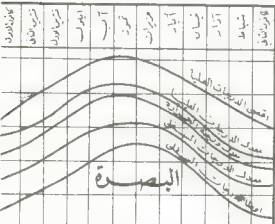 كانون الثاني
شباط
آذار
نيسان
أيار
حزيران
تموز
آب
أيلول
تشرين الاول
تشرين الثاني
كانون الاول
اقصى الدرجات العليا
معدل الدرجات العليا
معدل درجة الحرارة
معدل الدرجات السفلى
البصرة